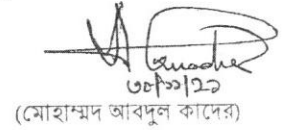 ৩০/১১/২১
(মোহাম্মদ আবদুল কাদের)